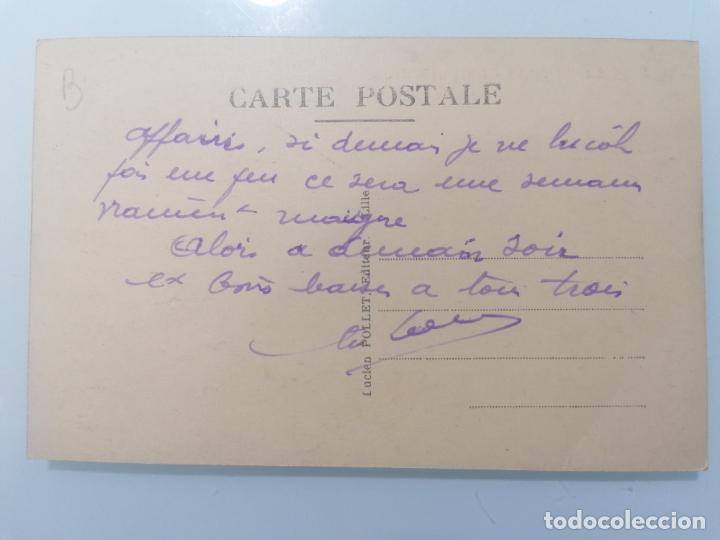 B
CARTE POSTALE
affaires, si demain je ne
pas une peu ce sera une semaine
vraiment maigre
Alors a demain soir
et bons baisers a tous trois
Lucien POLLET, Editeur, Lille
todocoleccion.net